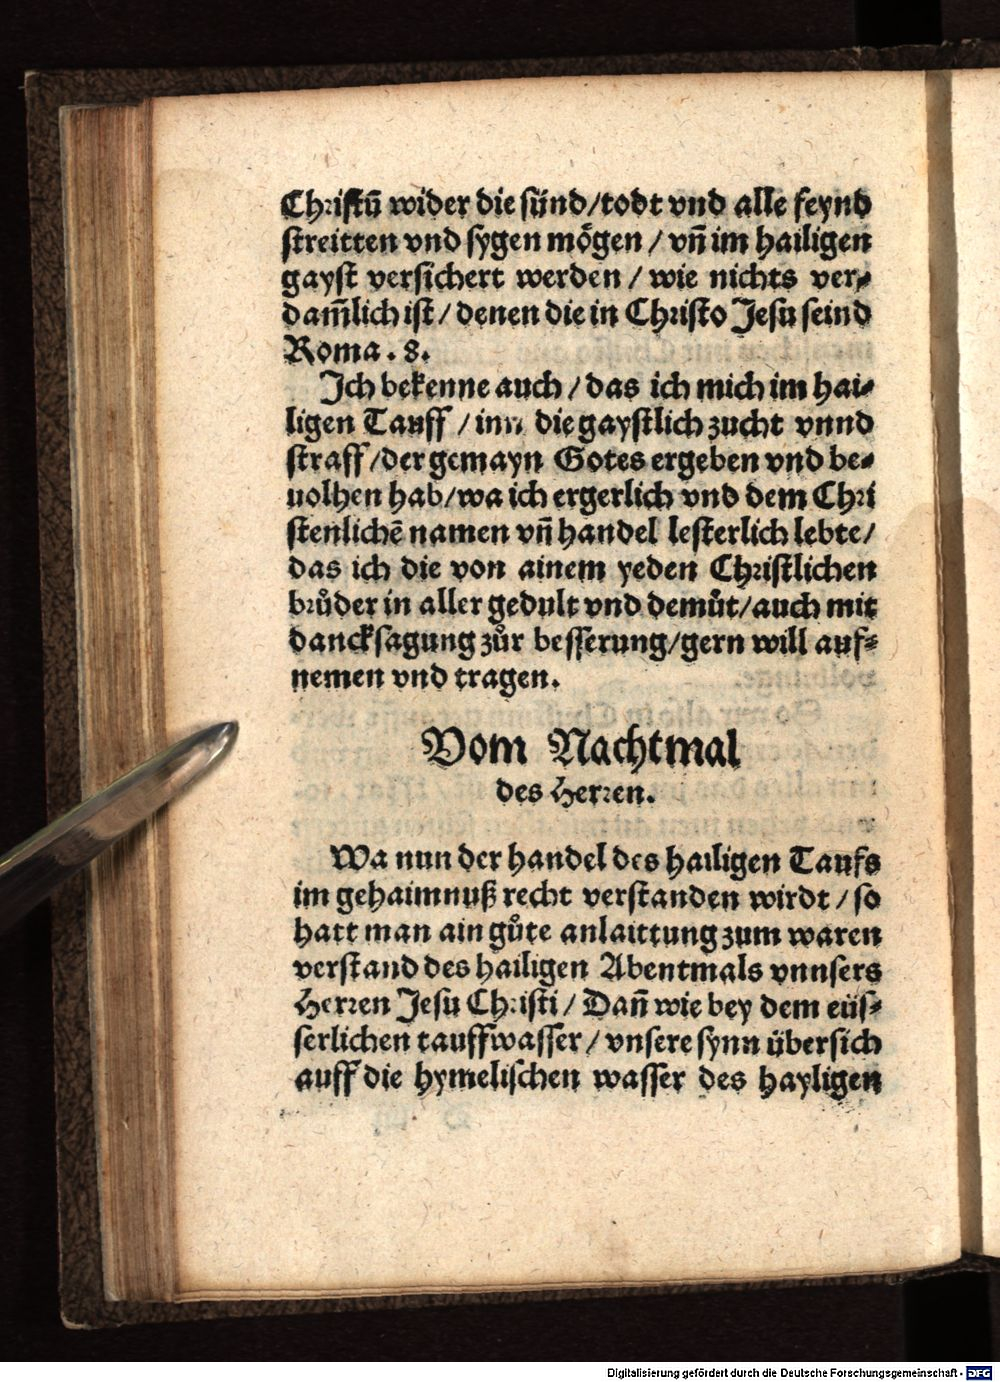 Christū wider die sünd/todt vnd alle feynd
streitten vnd sygen mögen / vñ im hailigen
gayst versichert werden / wie nichts ver⸗
dam̃lich ist / denen die in Christo Jesu seind
Roma . 8.
Ich bekenne auch / das ich mich im hai⸗
ligen Tauff / inn die gaystlich zucht vnnd
straff /der gemayn Gotes ergeben vnd be⸗
uolhen hab/wa ich ergerlich vnd dem Chri
stenlichē namen vñ handel lesterlich lebte/
das ich die von ainem yeden Christlichen
brůder in aller gedult vnd demůt/auch mit
dancksagung zůr besserung/gern will auf⸗
nemen vnd tragen.
Vom Nachtmal
des Herren.
Wa nun der handel des hailigen Taufs
im gehaimnuß recht verstanden wirdt / so
hatt man ain gůte anlaittung zum waren
verstand des hailigen Abentmals vnnsers
Herren Jesu Christi / Dañ wie bey dem eüs⸗
serlichen tauffwasser / vnsere synn übersich
auff die hymelischen wasser des hayligen
Digitalisierung gefördert durch die Deutsche Forschungsgemeinschaft - DFG